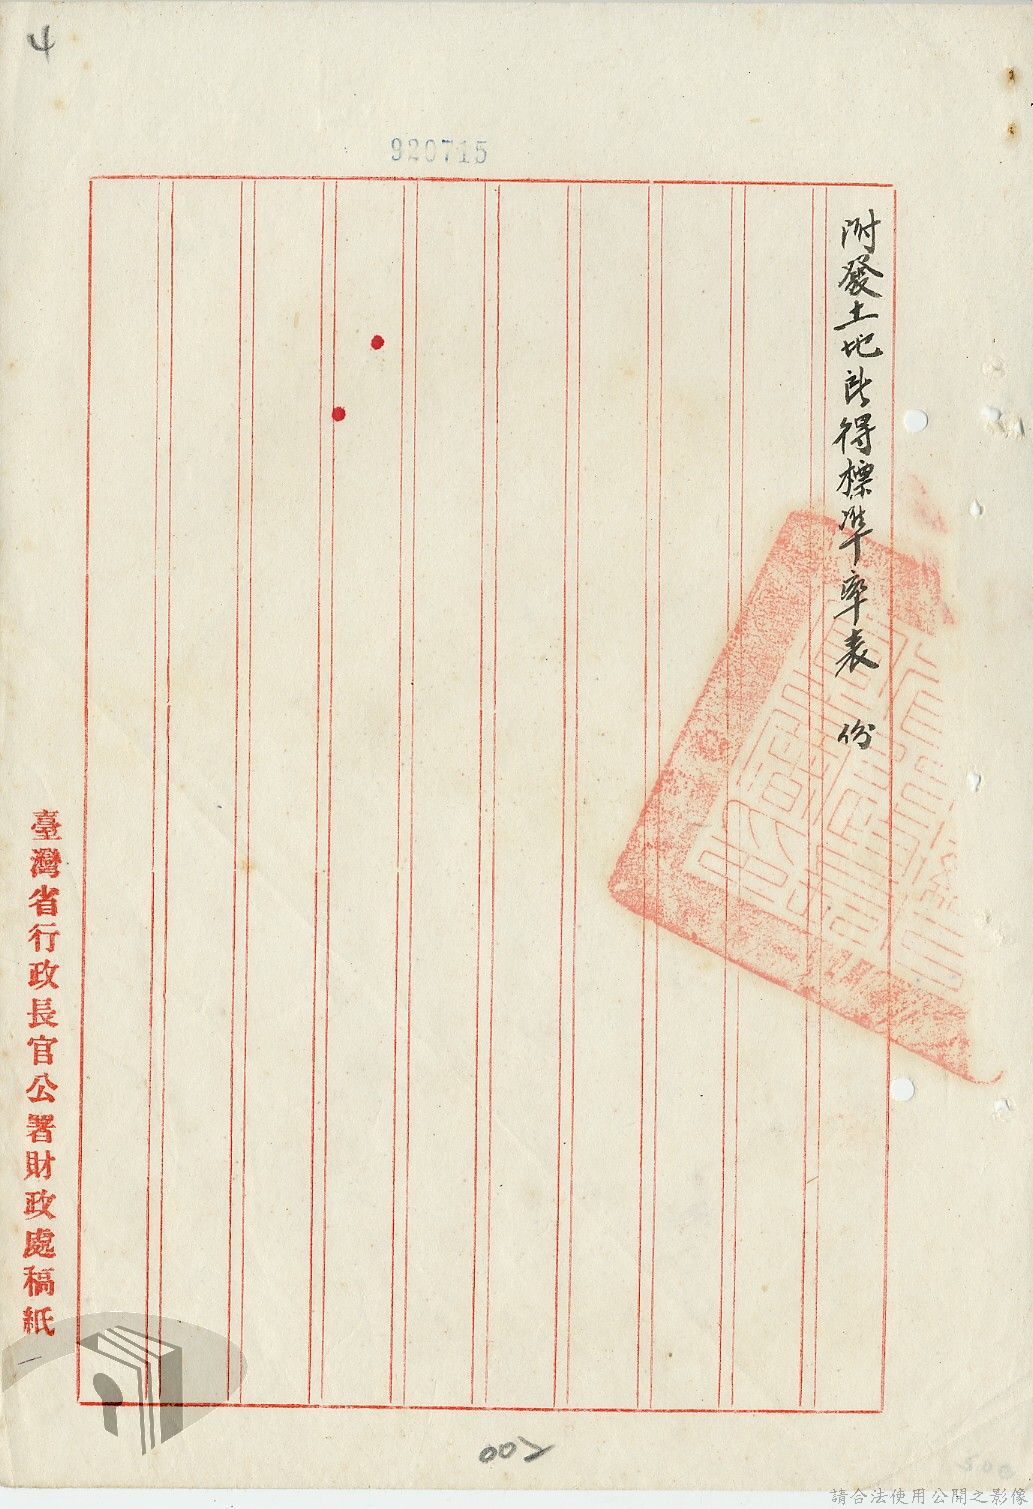 4
920715
附發土地所得標準率表　份
臺灣省行政長官公署財政處稿紙
007
請合法使用公開之影像